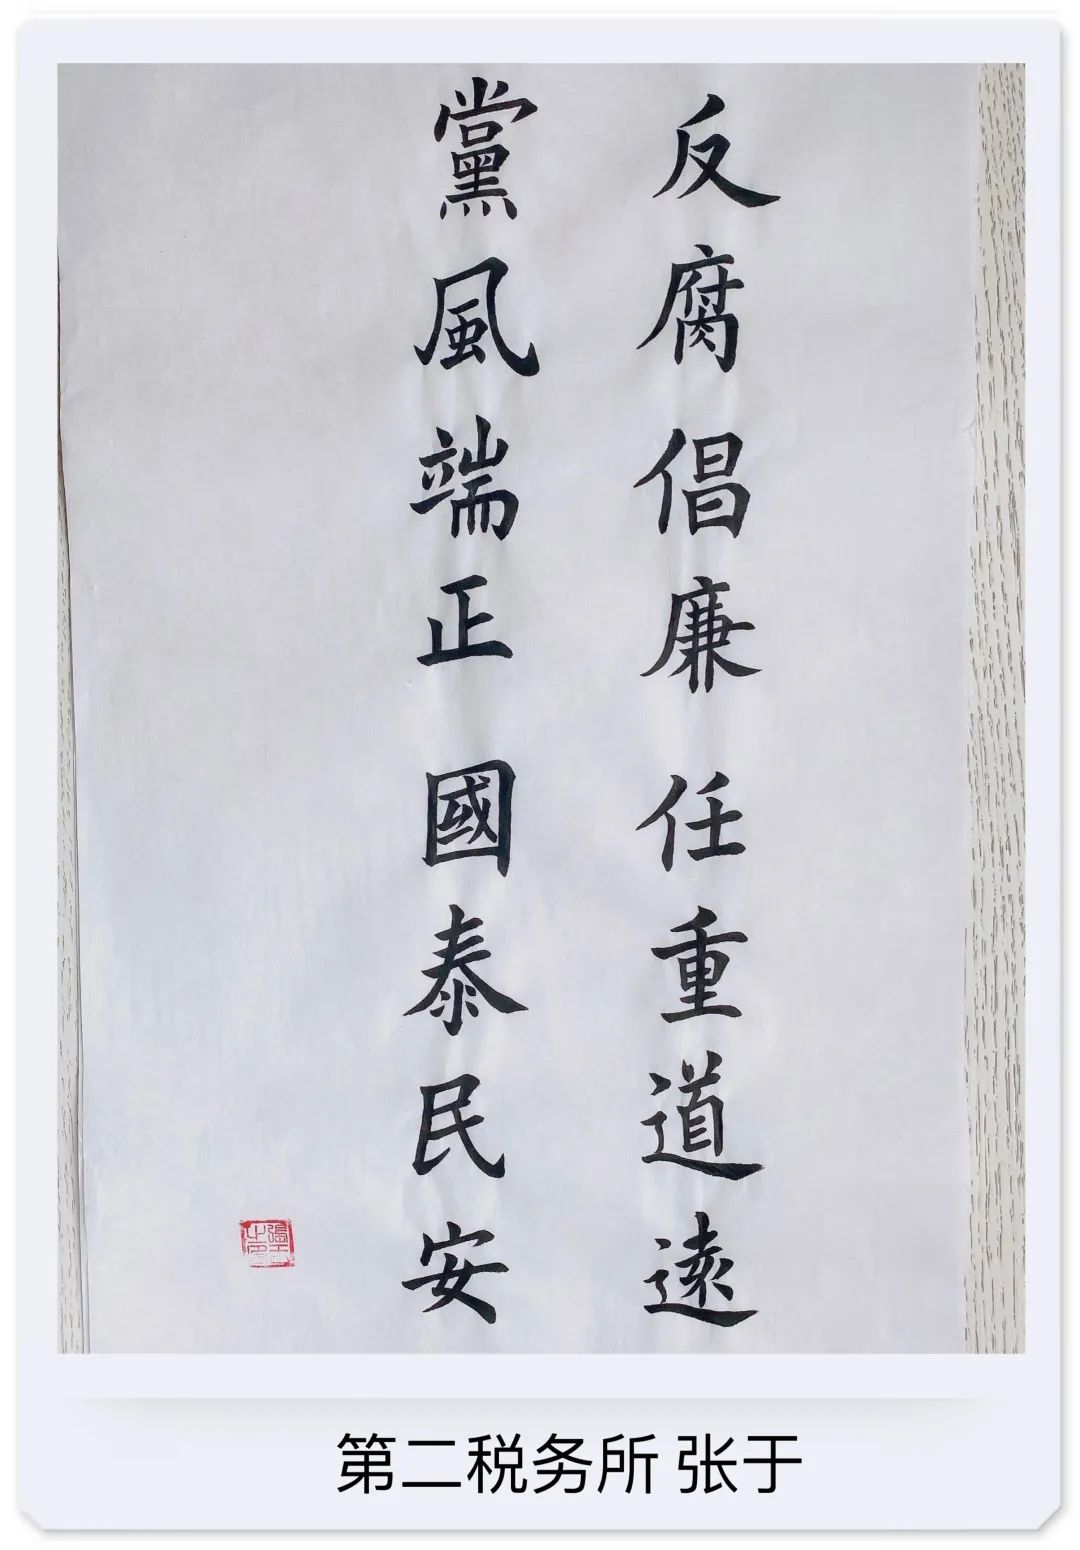 反腐倡廉任重道遠
黨風端正國泰民安
第二税务所 张于